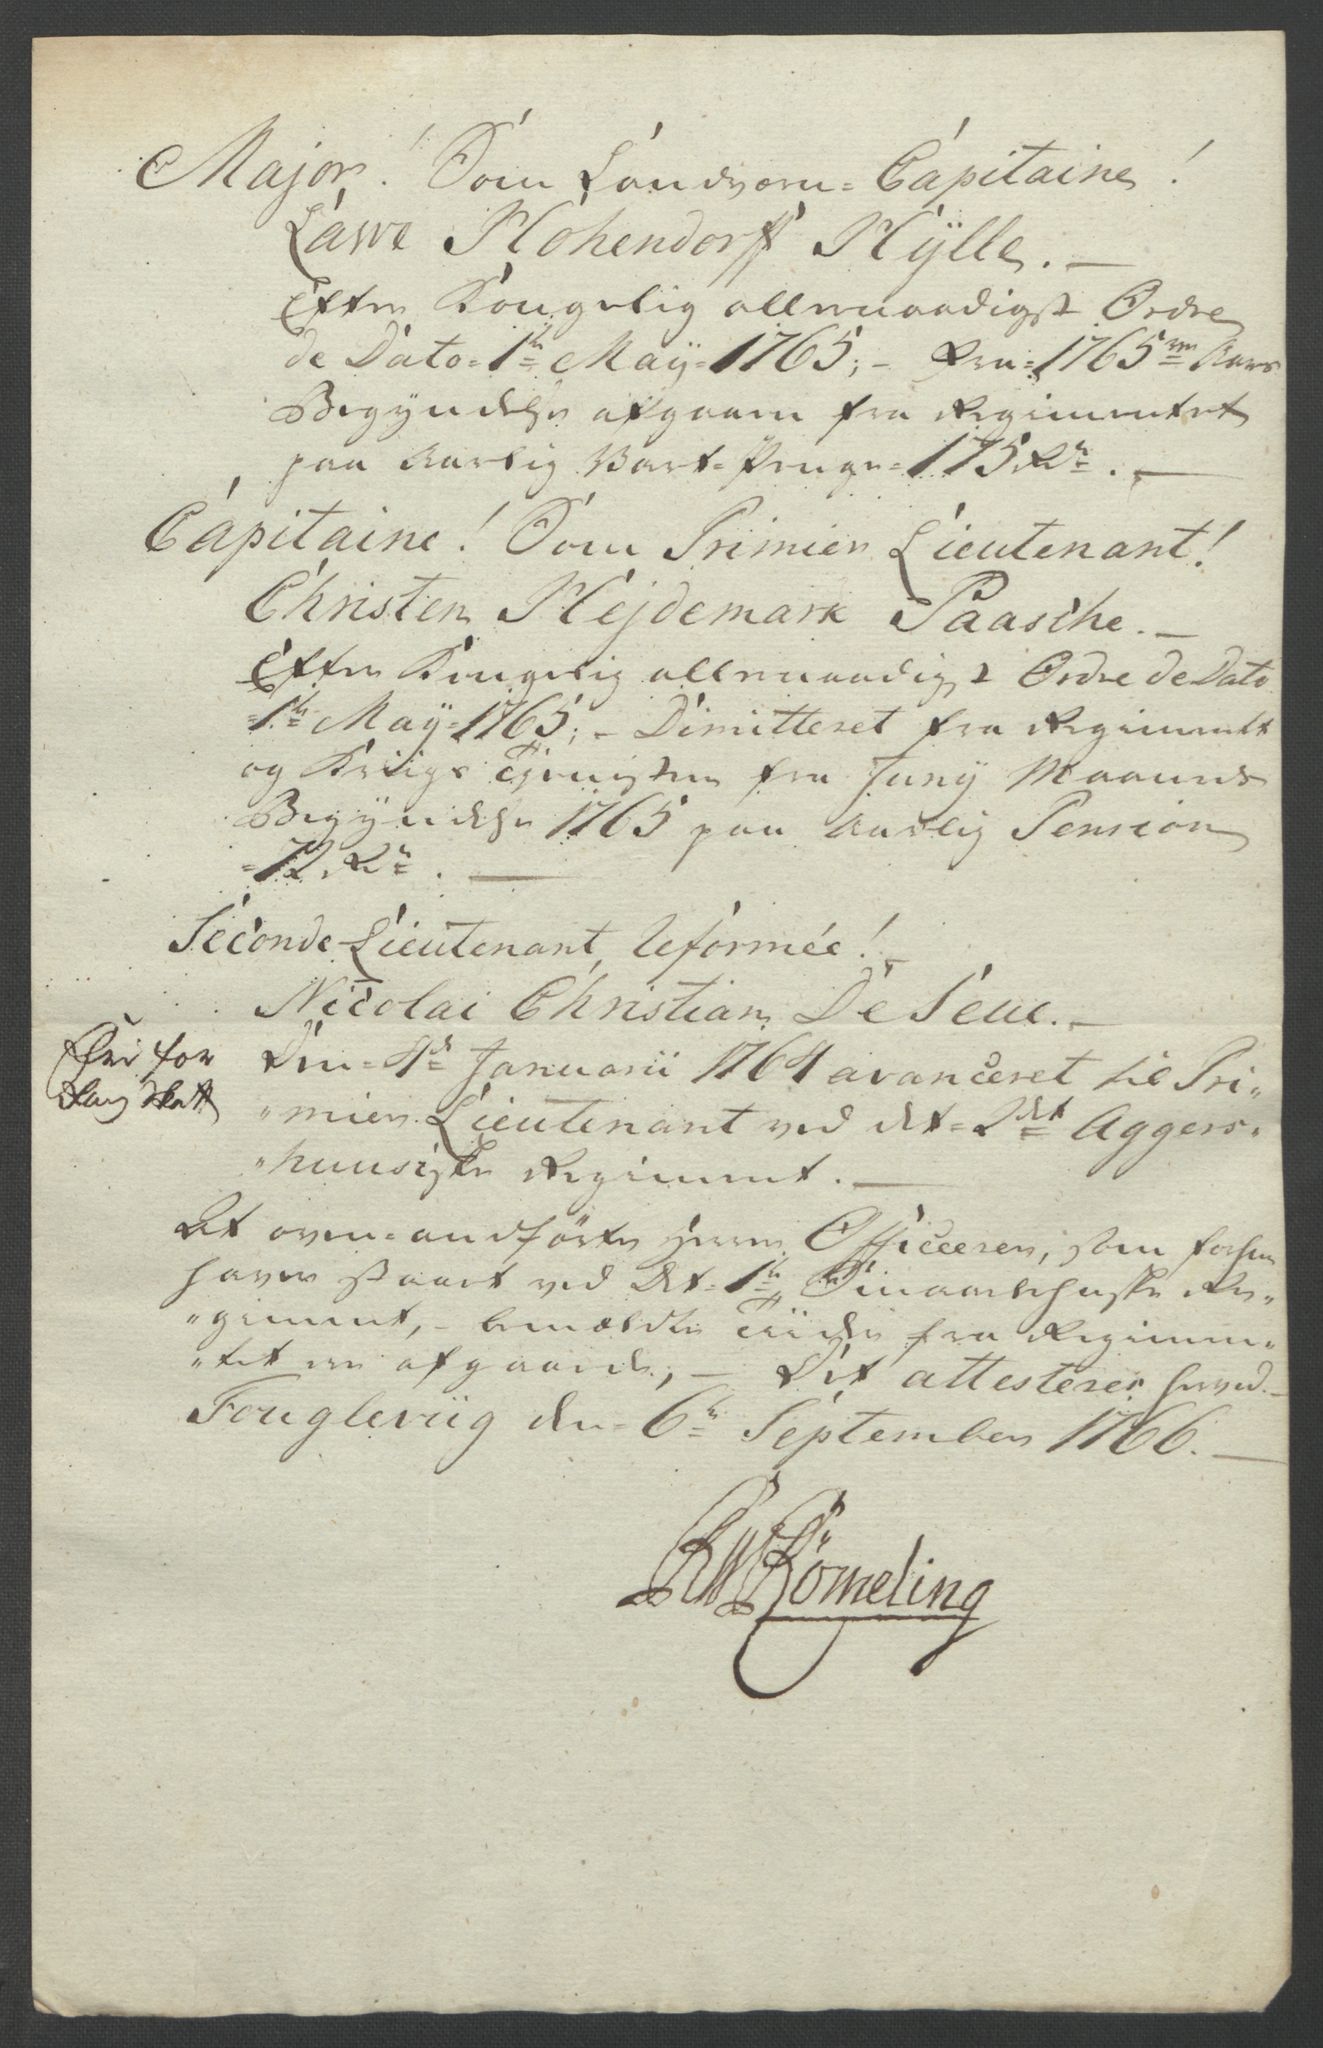 Major! Som Landværn- Capitaine!
Lawe Hohendorff Hÿlle. —
Efter Kongelig allernaadigst Ordre
de Dato- 1te May- 1765; - Fra- 1765ve Aars
Begyndelse afgaaen fra Regimentet
paa Aarlig Vart-Penge- 175 Rd. —
Capitaine! Som Primier Lieutenant!
Christen Hejdemark Paasche. —
Efter Kongelig allernaadigst Ordre de Dato
-1te May- 1765; - Dimitteret fra Regimentet
og Kriigs Tjenisten fra Junÿ Maaneds
Begyndelse 1765 paa Aarlig Pension
-72 Rd. —
Seconde Lieutenant, Reformée! -
Nicolai Christian De Seue. —
Fri for
Skatt
Den- 4de Januarii 1764 avanceret til Pri-
-mier Lieutenant ved det- 2det Aggers-
-huusiske Regiment. —
At oven-andførte Herrer Officerer, som forhen
haver staaet ved Det- 1te Smaalehnske Re-
-giment, - bemældte Tiider fra Regimen-
-tet ere afgaaede, — Det attesteres herved. —
Fougleviig den- 6te September 1766. —
Römeling